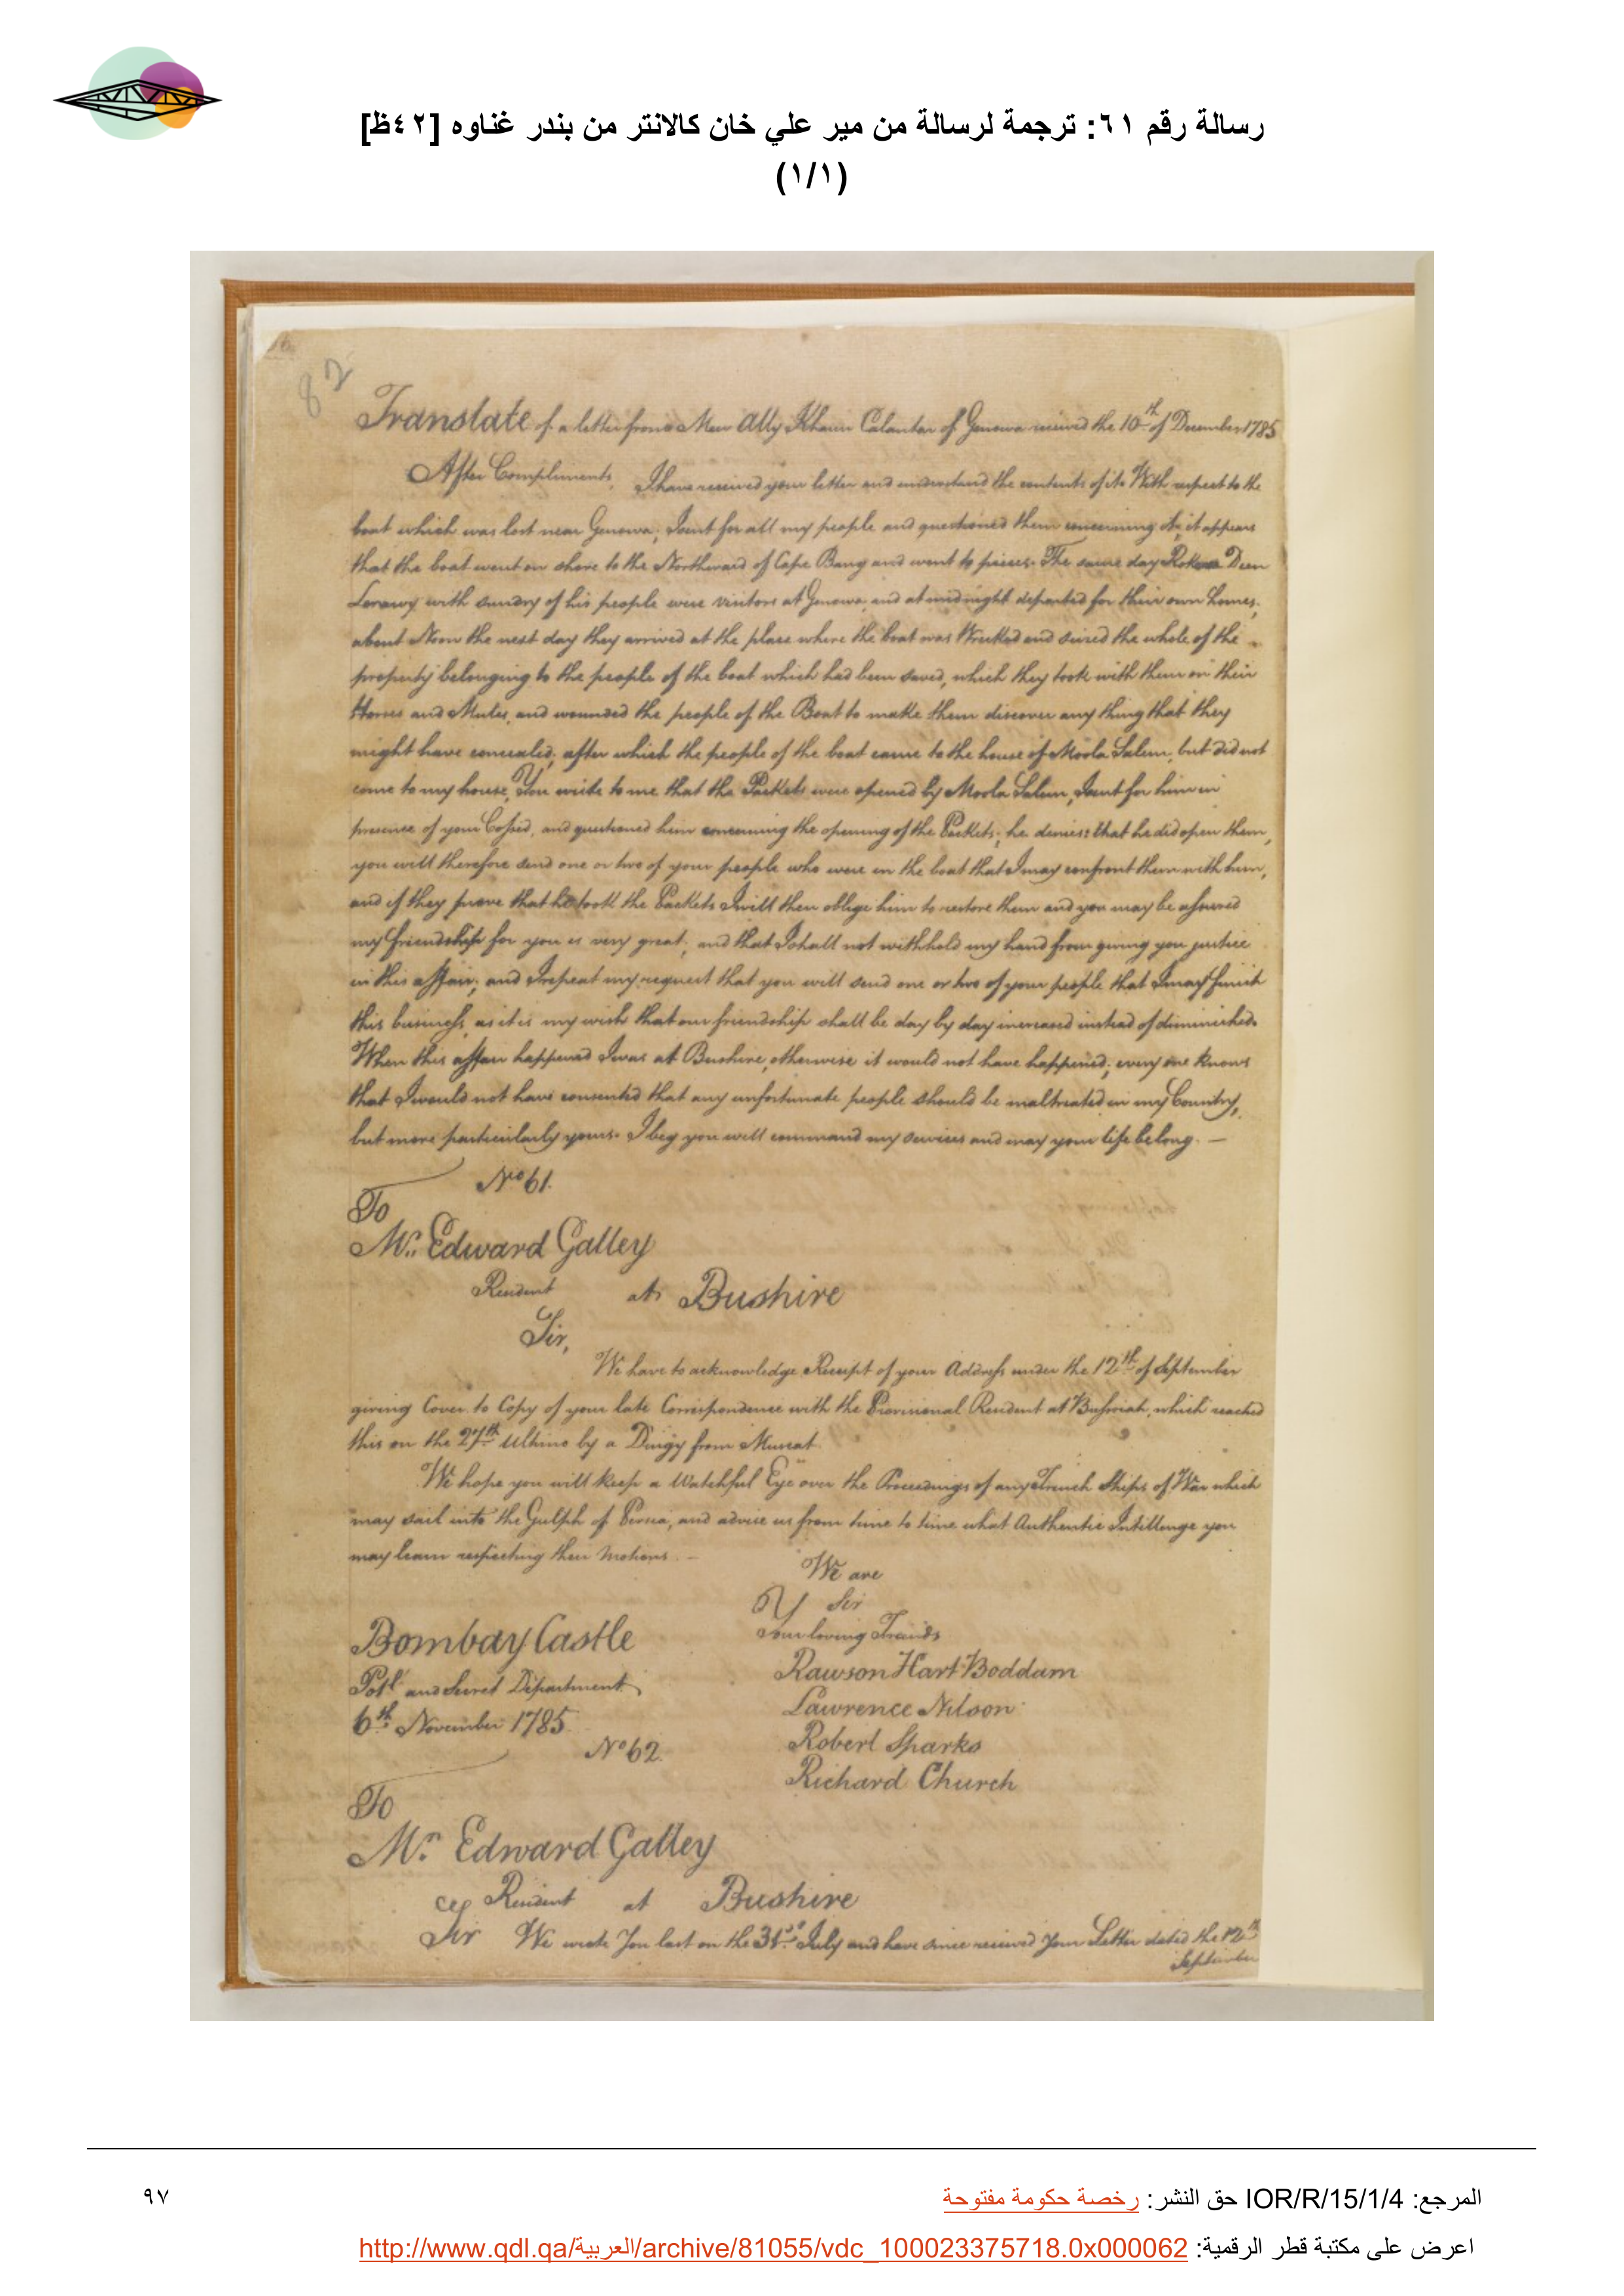 رسالة رقم ٦١: ترجمة لرسالة من مير علي خان كالانتر من بندر غناوه [٤٢ظ]
(١/١)
82
Translate of a letter from Meer Ally Khaun Calantar of Genowa received the 10th of December 1785
After Compliments, I have received your letter and understand the contents of it. With respect to the
boat which was lost near Genowa, I sent for all my people and questioned them concerning it, it appears
that the boat went on shore to the Northward of Cape Bang and went to pieces. The same day Deen
with sundry of his people were visitors at Genowa, and at midnight departed for their own homes,
about Noon the next day they arrived at the place where the boat was Wrecked and seized the whole of the
property belonging to the people of the boat which had been saved, which they took with them on their
Horses and Mules, and wounded the people of the Boat to make them discover any thing that they
might have concealed; after which the people of the boat came to the house of Moola Salem, but did not
come to my house, You write to me that the Packets were opened by Moola Salem, I sent for him in
presence of your Cossid, and questioned him concerning the opening of the Packets; he denies that he did open them,
you will therefore send one or two of your people who were in the boat that I may confront them with him,
and if they prove that he took the Packets I will then oblige him to restore them and you may be assured
my friendship for you is very great; and that I shall not withhold my hand from giving you justice
in this affair; and I repeat my request that you will send one or two of your people that I may finish
this business, as it is my wish that our friendship shall be day by day increased instead of diminished.
When this affair happened I was at Bushire, otherwise it would not have happened; every one knows
that I would not have consented that any unfortunate people should be maltreated in my Country,
but more particularly yours. I beg you will command my services and may your life be long. —
No 61.
To
Mr. Edward Galley
Resident at Bushire
Sir,
We have to acknowledge Receipt of your Address under the 12th of September
giving Cover to Copy of your late Correspondence with the Provisional Resident at Bussorah, which reached
this on the 27th Ultimo by a Dingy from Muscat.
We hope you will keep a Watchful Eye over the Proceedings of any French Ships of War which
may sail into the Gulph of Persia, and advise us from time to time what Authentic Intillenge you
may learn respecting their Motions. —
We are
Sir
Your loving Friends
Bombay Castle
Rawson Hart Boddam
Poll. and Secret Department
Lawrence Nilson
6th November 1785.
Robert Sparks
No 62.
Richard Church
To
Mr. Edward Galley
Resident at Bushire
Sir We wrote You last on the 31st July and have since received Your Letter dated the 12th
September
المرجع: IOR/R/15/1/4 حق النشر: رخصة حكومة مفتوحة
٩٧
اعرض على مكتبة قطر الرقمية: http://www.qdl.qa/العربية/archive/81055/vdc_100023375718.0x000062